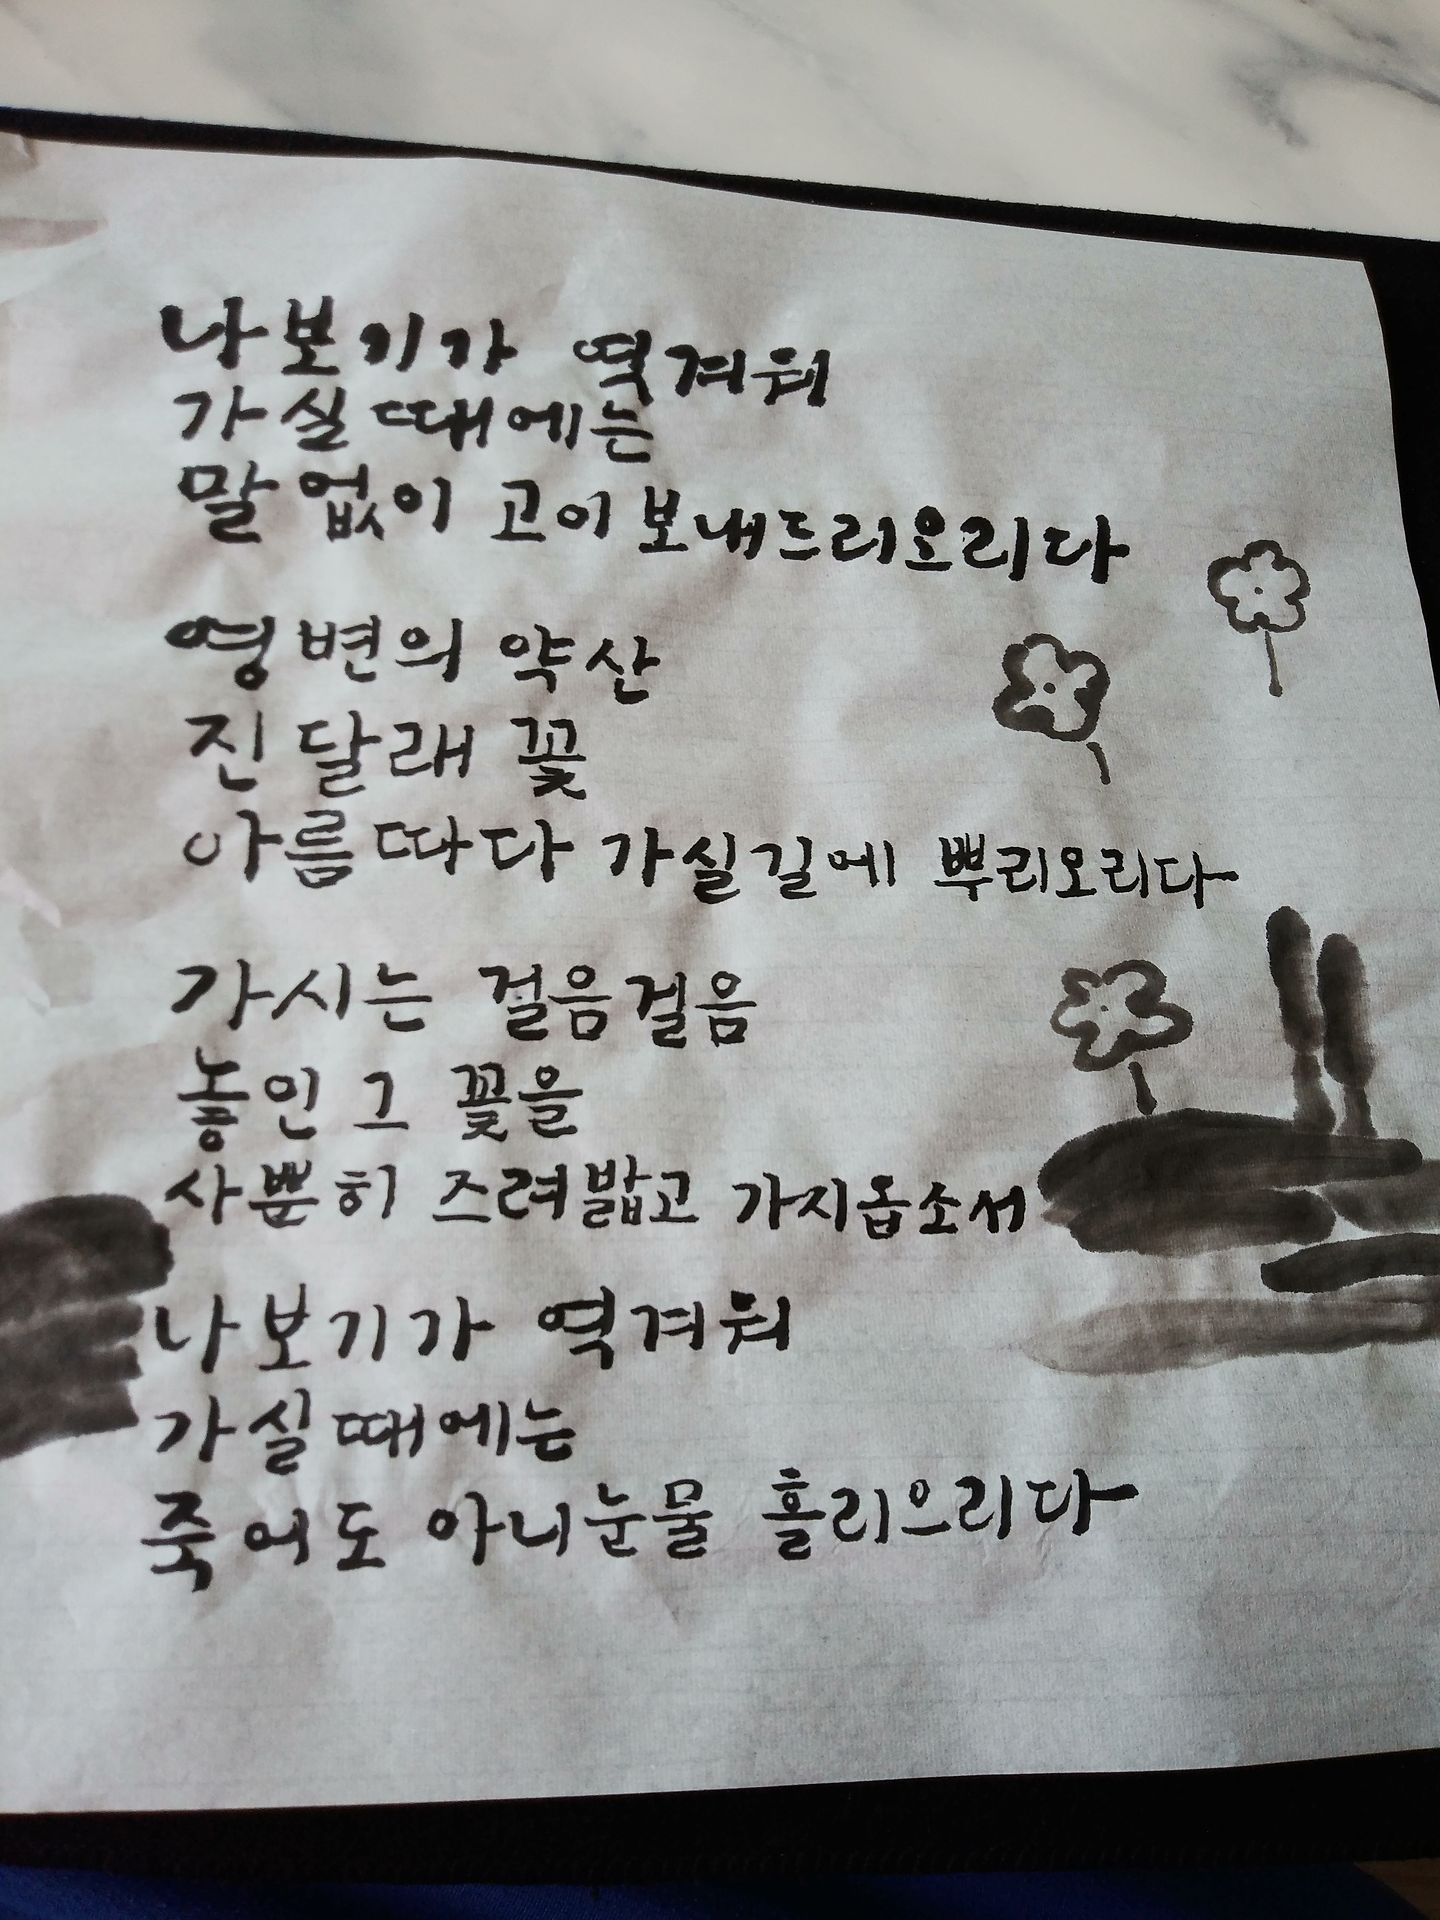 나보기가 역겨워
가실때에는
말없이 고이보내드리오리다
영변의 약산
진달래 꽃
아름따다 가실길에 뿌리오리다
가시는 걸음걸음
놓인 그 꽃을
사뿐히 즈려밟고 가지옵소서
나보기가 역겨워
가실때에는
죽어도 아니눈물 흘리으리다